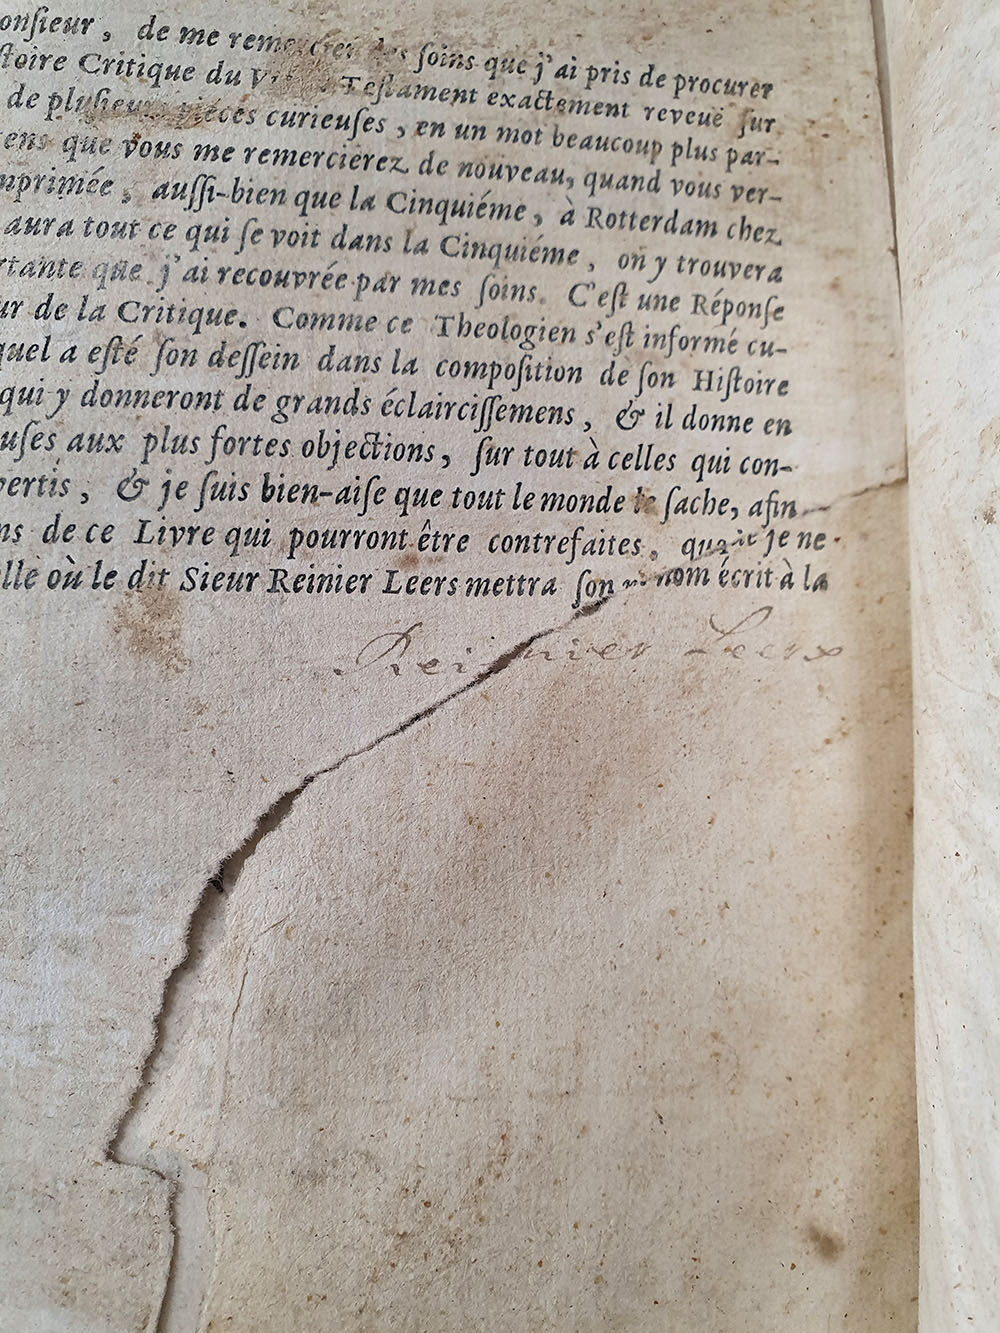 onſieur, de me remercier des ſoins que j'ai pris de procurer
ſtoire Critique du Vieux Teſtament exactement reveuë ſur
de pluſieurs piéces curieuſes, en un mot beaucoup plus par-
ens que vous me remercierez de nouveau, quand vous ver-
mprimée, auſſi-bien que la Cinquiéme, à Rotterdam chez
aura tout ce qui ſe voit dans la Cinquiéme, on y trouvera
rtante que j'ai recouvrée par mes ſoins. C'eſt une Réponſe
ur de la Critique. Comme ce Theologien s'eſt informé cu-
quel a eſté ſon deſſein dans la compoſition de ſon Hiſtoire
qui y donneront de grands éclairciſſemens, & il donne en
uſes aux plus fortes objections, ſur tout à celles qui con-
vertis, & je ſuis bien-aiſe que tout le monde le ſache, afin
ns de ce Livre qui pourront être contrefaites, je ne
elle où le dit Sieur Reinier Leers mettra ſon nom écrit à la
Reinier Leers